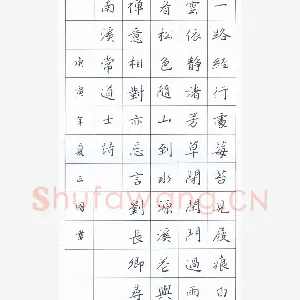 一路經行處莓苔見履痕白
雲依靜渚芳草閉閒門過雨
看松色隨山到水源溪花與
禪意相對亦忘言劉長卿尋
南溪常道士詩
庚寅年夏
Shufawang.CN